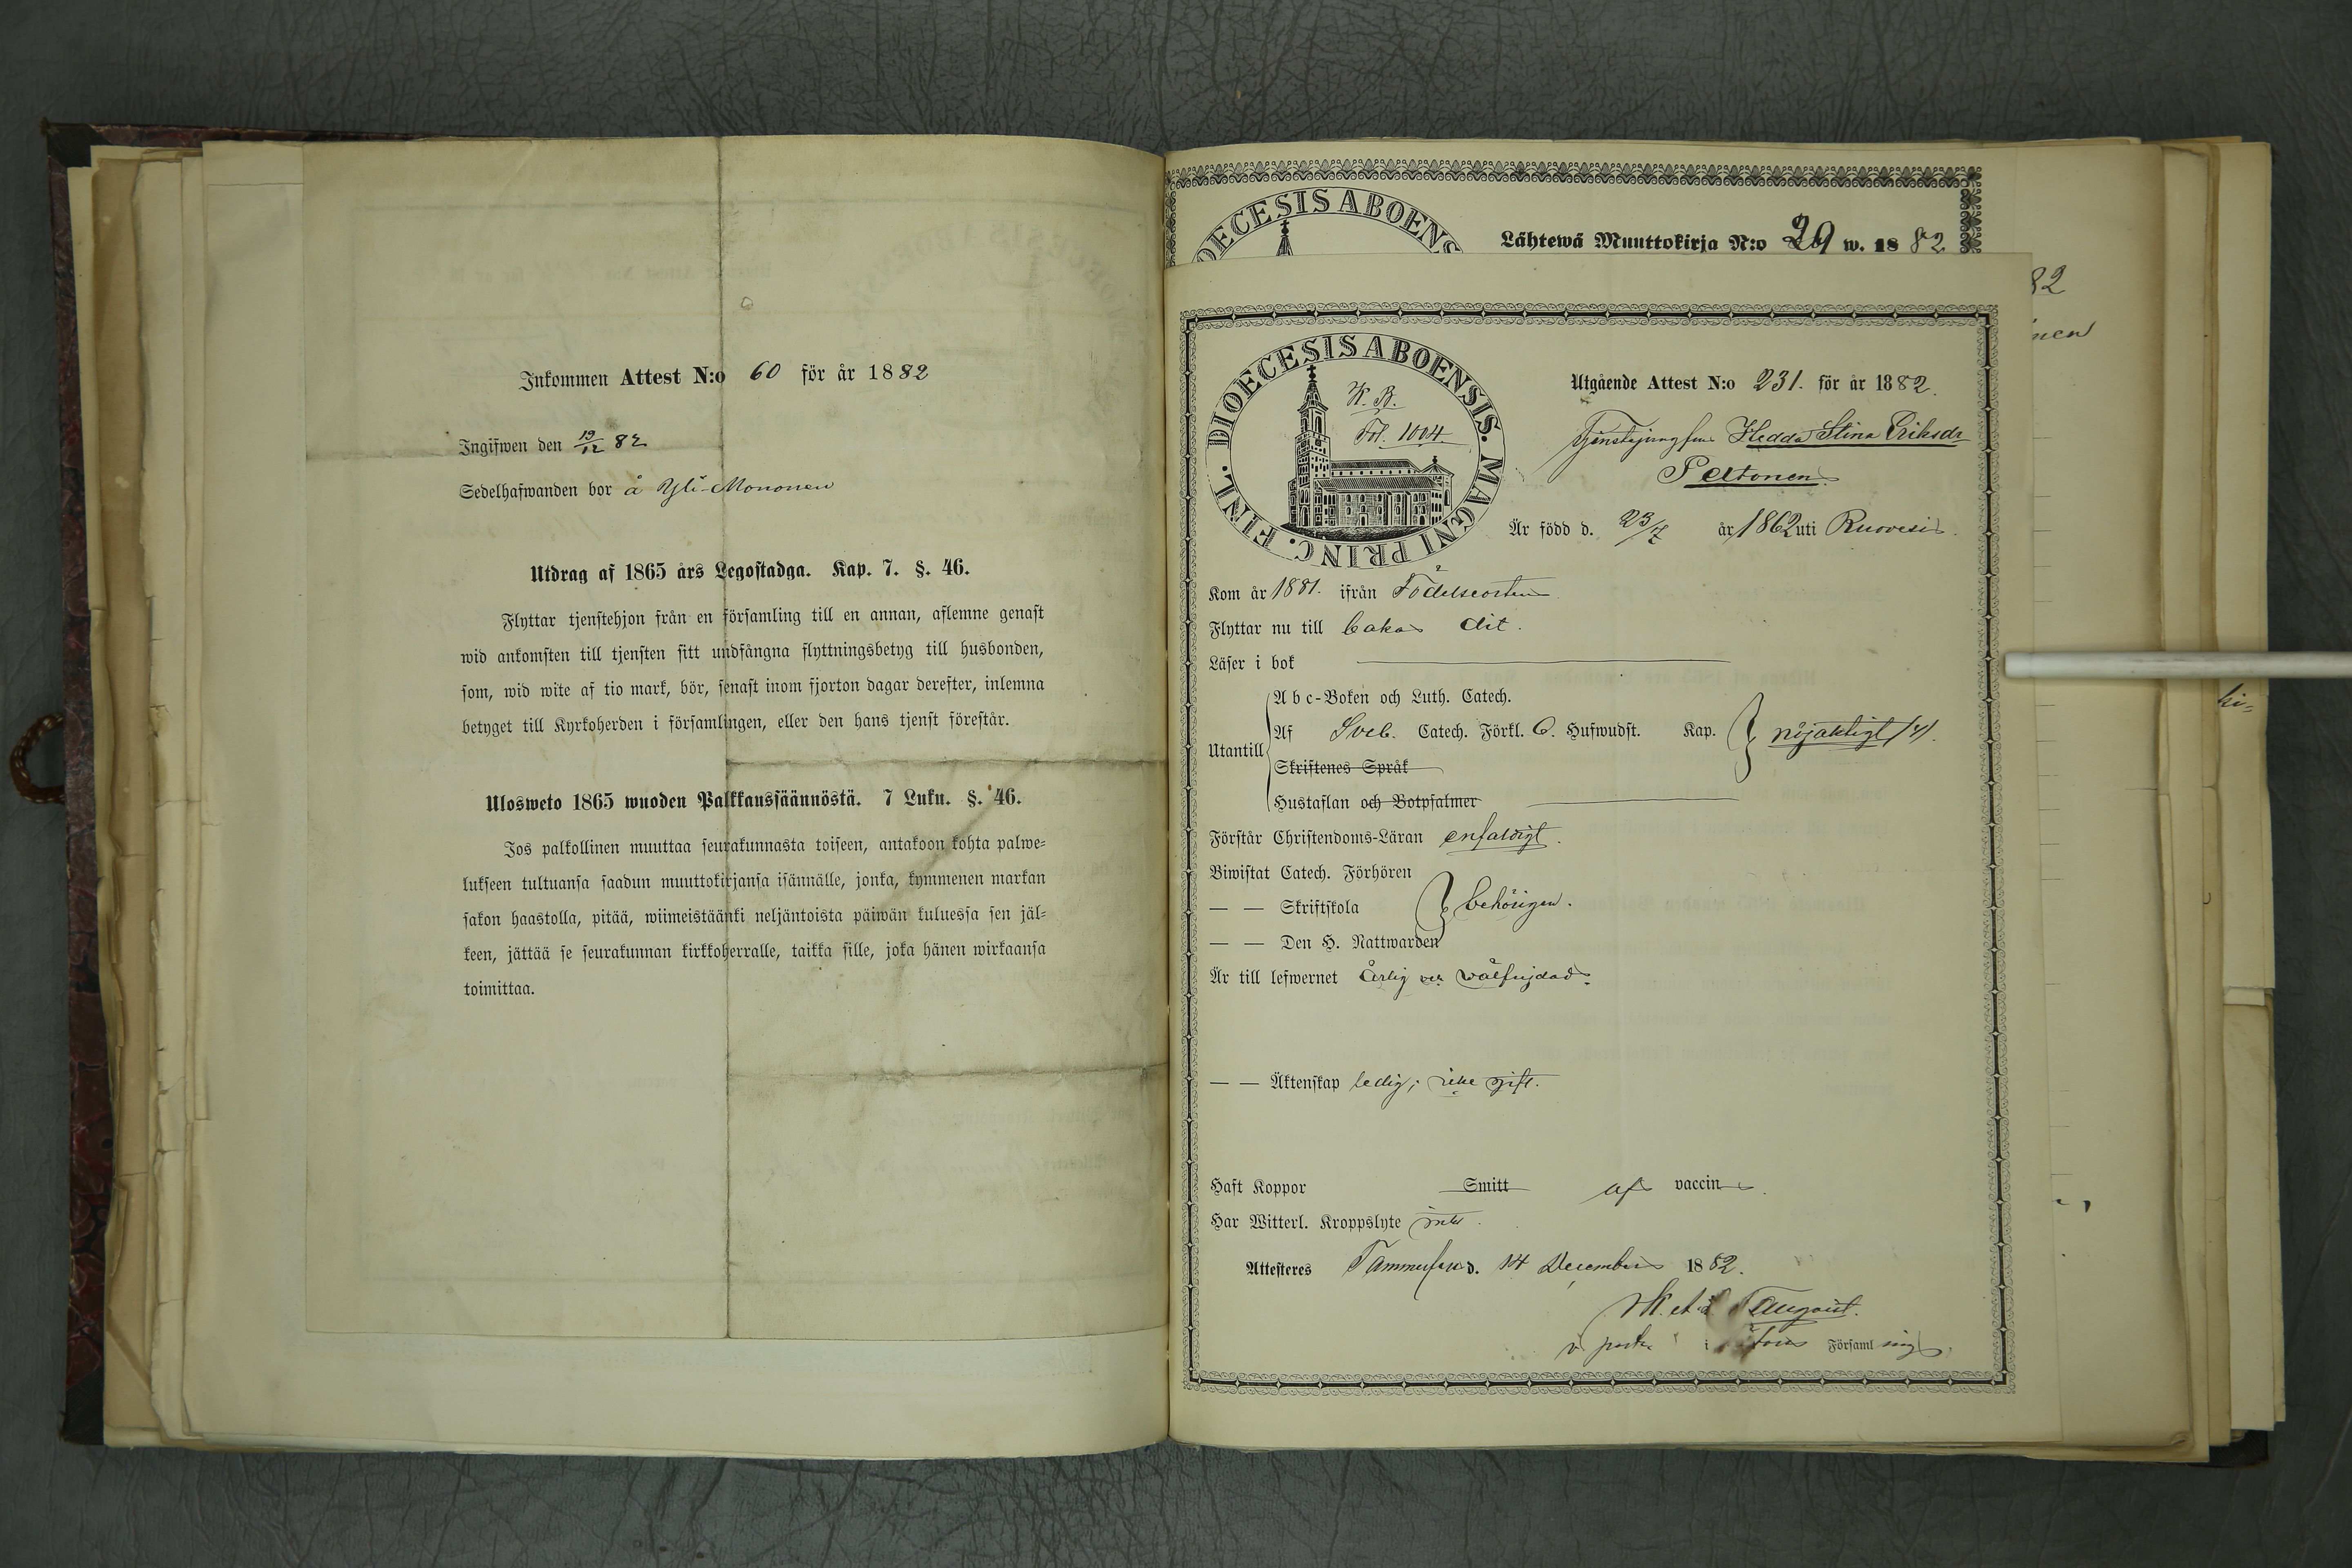 Inkommen Attest N:o 60 för år 1882
Ingifwen den 19/12 82
Sedelhafwanden bor å Yli-Mononen
Utdrag af 1865 års Legostadga. Kap. 7. §. 46.
Flyttar tjenstehjon från en församling till en annan, aflemne genast
wid ankomsten till tjensten sitt undfångna flyttningsbetyg till husbonden,
som, wid wite af tio mark, bör, senast inom fjorton dagar derefter, inlemna
betyget till Kyrkoherden i församlingen, eller den hans tjenst förestår.
Ulosweto 1865 wuoden Palkkaussäännöstä. 7 Luku. §. 46.
Jos palkollinen muuttaa seurakunnasta toiseen, antakoon kohta palwe-
lukseen tultuansa saadun muuttokirjansa isännälle, jonka, kymmenen markan
sakon haastolla, pitää, wiimeistäänki neljäntoista päiwän kuluessa sen jäl-
keen, jättää se seurakunnan kirkkoherralle, taikka sille, joka hänen wirkaansa
toimittaa.
DIOECESIS ABOENS
Lähtewä Muuttokirja N:o 29 w. 1882
82
nen
DIOECESIS ABOENSIS. MAGNI PRINC. FINL.
K. B.
Fol. 1004.
Utgående Attest N:o 231. för år 1882.
Tjenstejungfrun Hedda Stina Eriksdr
Peltonen
Är född d. 23/7 år 1862 uti Ruovesi.
Kom år 1881. ifrån Födelseorten
Flyttar nu till baka dit.
Läser i bok
Abc-Boken och Luth. Catech.
Utantill Af Sveb. Catech. Förkl. 6. Hufwudst. Kap. nöjaktigt
Skriftenes Språk
Hustaflan och Botpsalmer
Förstår Christendoms-Läran enfaldigt.
Biwistat Catech. Förhören
— — Skriftskola behörigen.
— — Den H. Nattwarden
Är till lefwernet ärlig och välfrejdad.
— — Äktenskap ledig; icke gift.
Haft Koppor Smitt af vaccin
Har Witterl. Kroppslyte inte.
Attesteres Tammerfors d. 14 December 1882.
i Församling